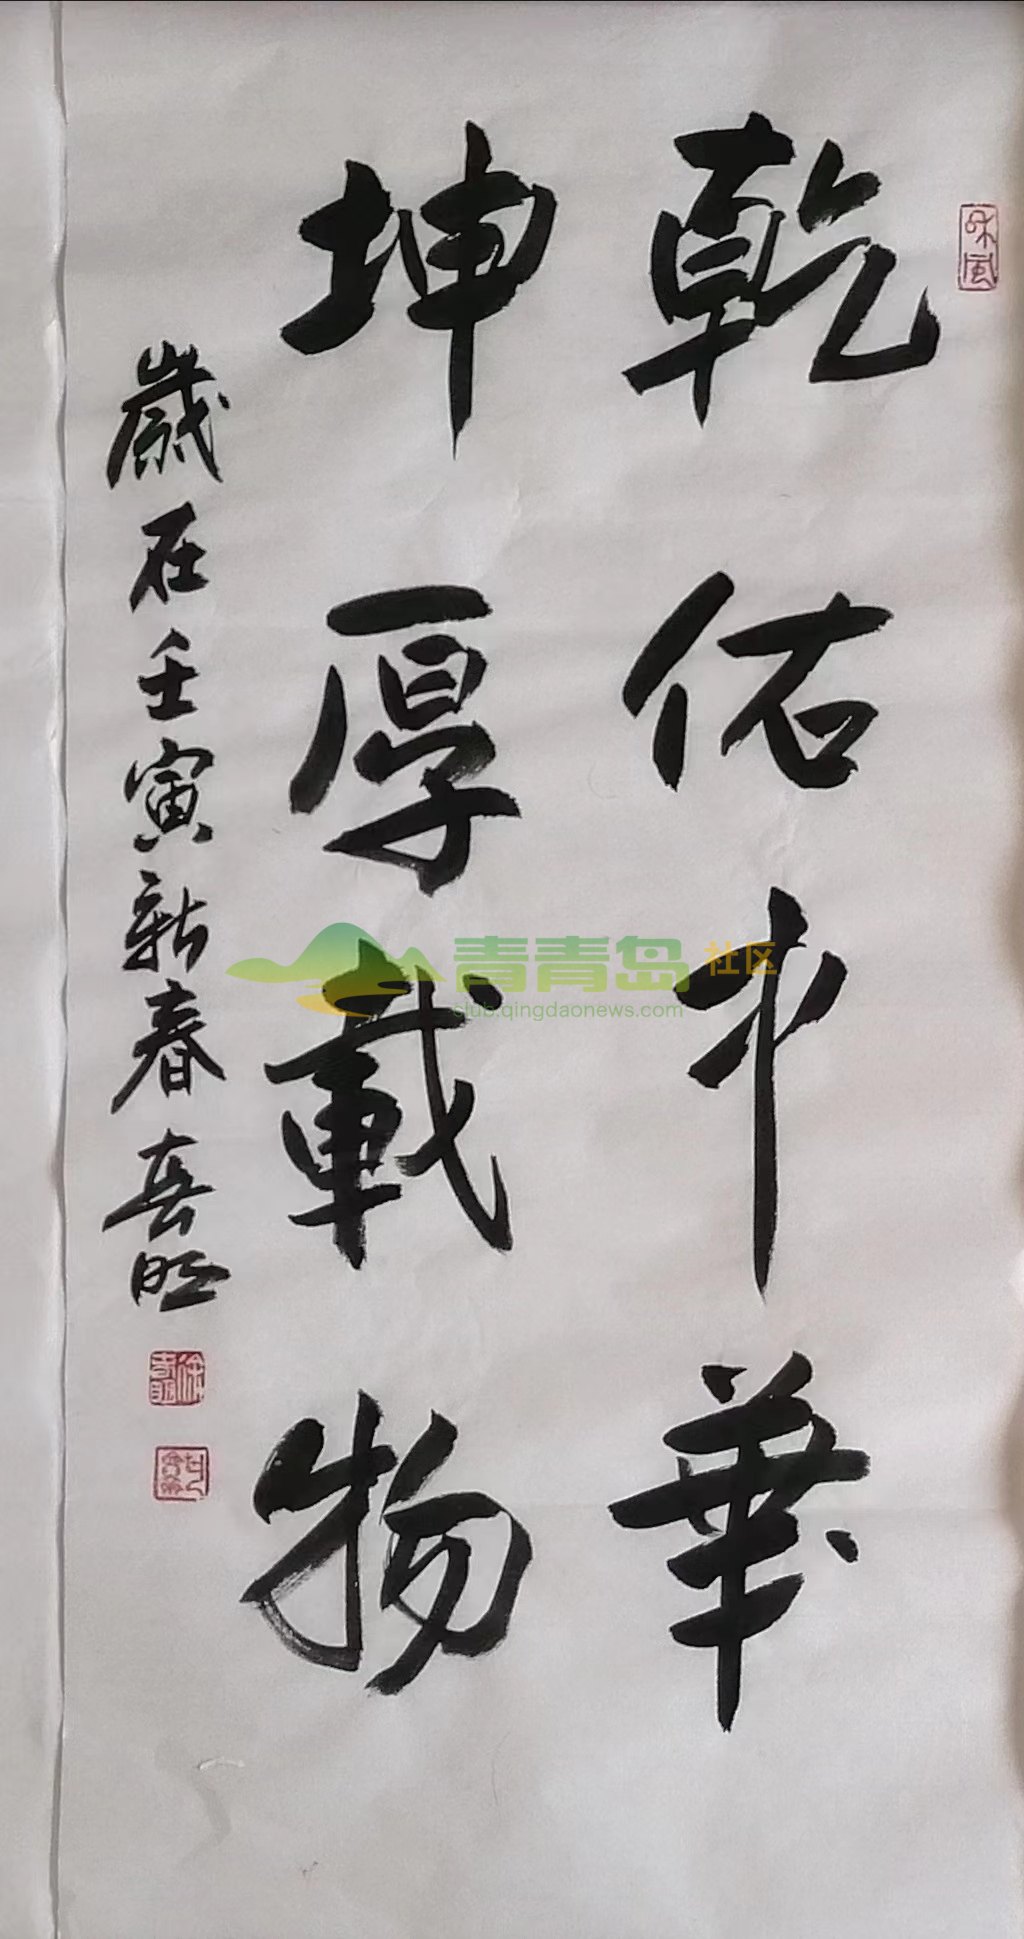 乾佑中華
坤厚載物
歲在壬寅新春喜明
和風
青青岛社区
club.qingdaonews.com